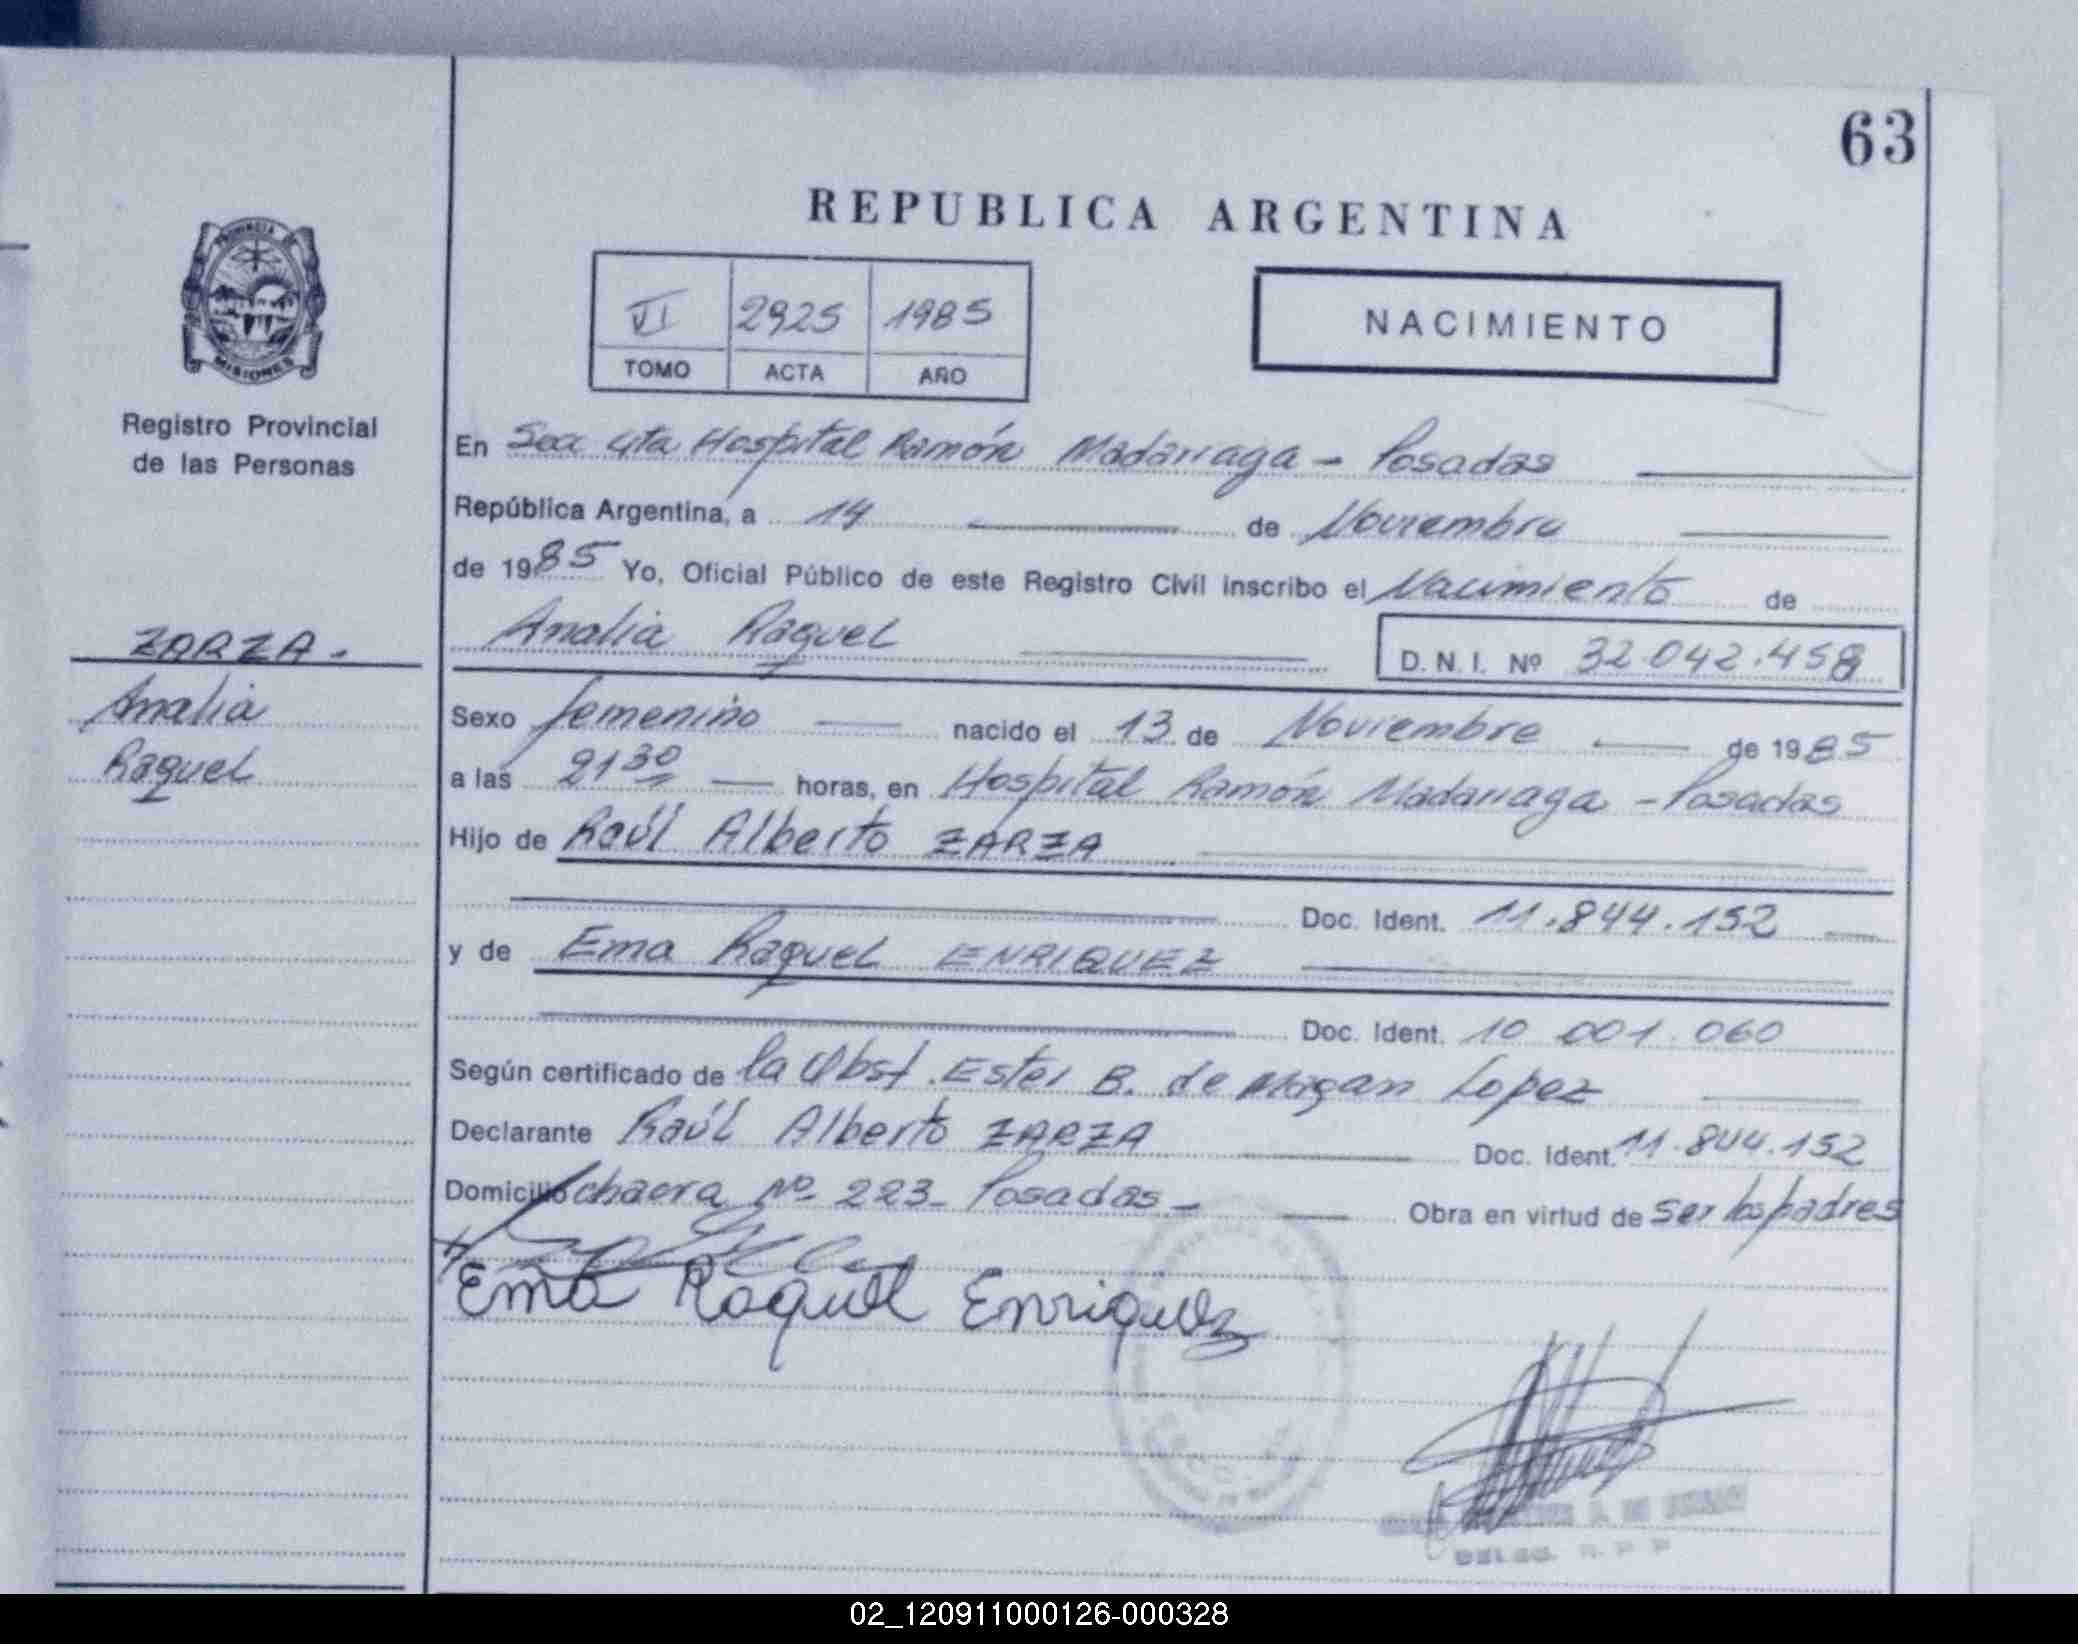 63
REPUBLICA ARGENTINA
VI 2925 1985
TOMO ACTA AÑO
NACIMIENTO
PROVINCIA DE
MISIONES
Registro Provincial
de las Personas
ZARZA.
Analia
Raquel
En Secc 4ta Hospital Ramón Madariaga - Posadas
República Argentina, a 14 de Noviembre
de 1985 Yo, Oficial Público de este Registro Civil inscribo el Nacimiento de
Analia Raquel D. N. I. Nº 32.042.458
Sexo femenino nacido el 13 de Noviembre de 1985
a las 21 30 horas, en Hospital Ramón Madariaga - Posadas
Hijo de Raúl Alberto ZARZA
Doc. Ident. 11.844.152
y de Ema Raquel ENRIQUEZ
Doc. Ident. 10 001.060
Según certificado de la Obst. Ester B. de Lopez
Declarante Raúl Alberto ZARZA Doc. Ident. 11.844.152
Domicilio chacra Nº 223- Posadas - Obra en virtud de ser los padres
Ema Raquel Enriquez
02_120911000126-000328